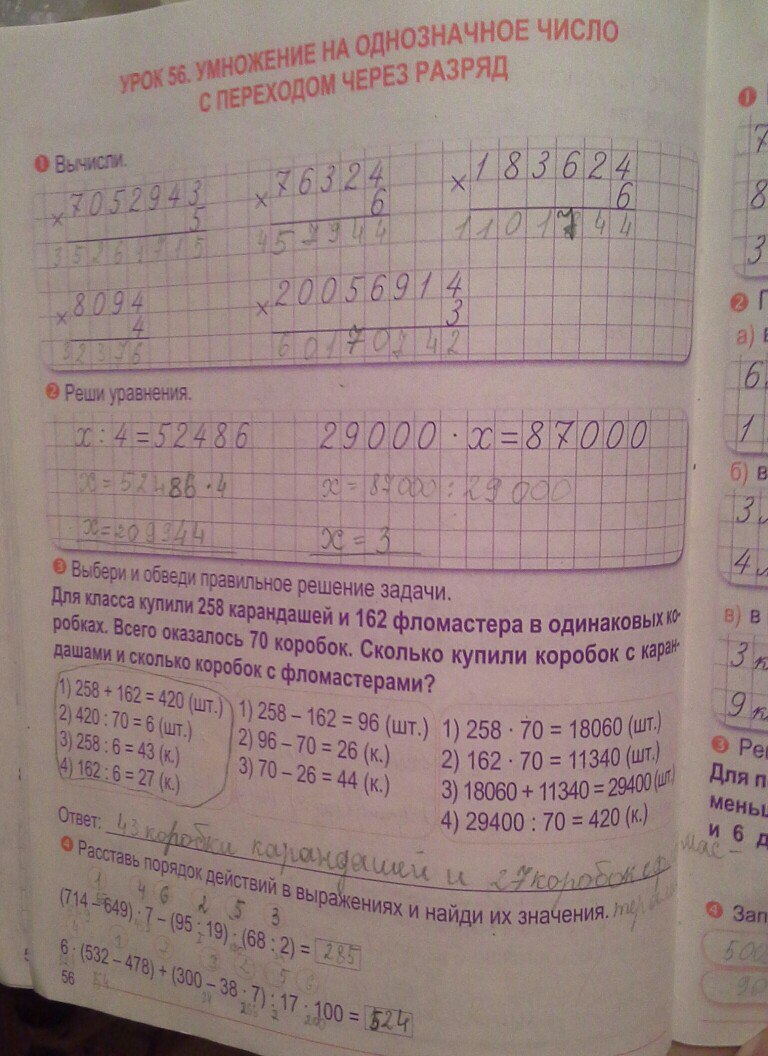 УРОК 56. УМНОЖЕНИЕ НА ОДНОЗНАЧНОЕ ЧИСЛО
С ПЕРЕХОДОМ ЧЕРЕЗ РАЗРЯД
1 Вычисли.
× 7052943 × 76324 × 183624
5 6 6
35264715 457944 1101744
× 8094 × 20056914
4 3
32376 60170742
2 Реши уравнения.
x : 4 = 52486 29000 · x = 87000
x = 52486 · 4 x = 87000 : 29 000
x = 209944 x = 3
3 Выбери и обведи правильное решение задачи.
Для класса купили 258 карандашей и 162 фломастера в одинаковых ко-
робках. Всего оказалось 70 коробок. Сколько купили коробок с каран-
дашами и сколько коробок с фломастерами?
1) 258 + 162 = 420 (шт.)
2) 420 : 70 = 6 (шт.)
3) 258 : 6 = 43 (к.)
4) 162 : 6 = 27 (к.)
1) 258 – 162 = 96 (шт.)
2) 96 – 70 = 26 (к.)
3) 70 – 26 = 44 (к.)
1) 258 · 70 = 18060 (шт.)
2) 162 · 70 = 11340 (шт.)
3) 18060 + 11340 = 29400 (шт.)
4) 29400 : 70 = 420 (к.)
Ответ: 43 коробки карандашей и 27 коробок
4 Расставь порядок действий в выражениях и найди их значения.
1 4 6 2 5 3
(714 – 649) · 7 – (95 : 19) · (68 : 2) = 285
6 · (532 – 478) + (300 – 38 · 7) : 17 · 100 = 524
56
1
7
8
3
2
а) в
6
1
б) в
3
4
в) в
3 к
9 к
3 Ре
Для п
меньш
и 6 д
4 Зап
500
90